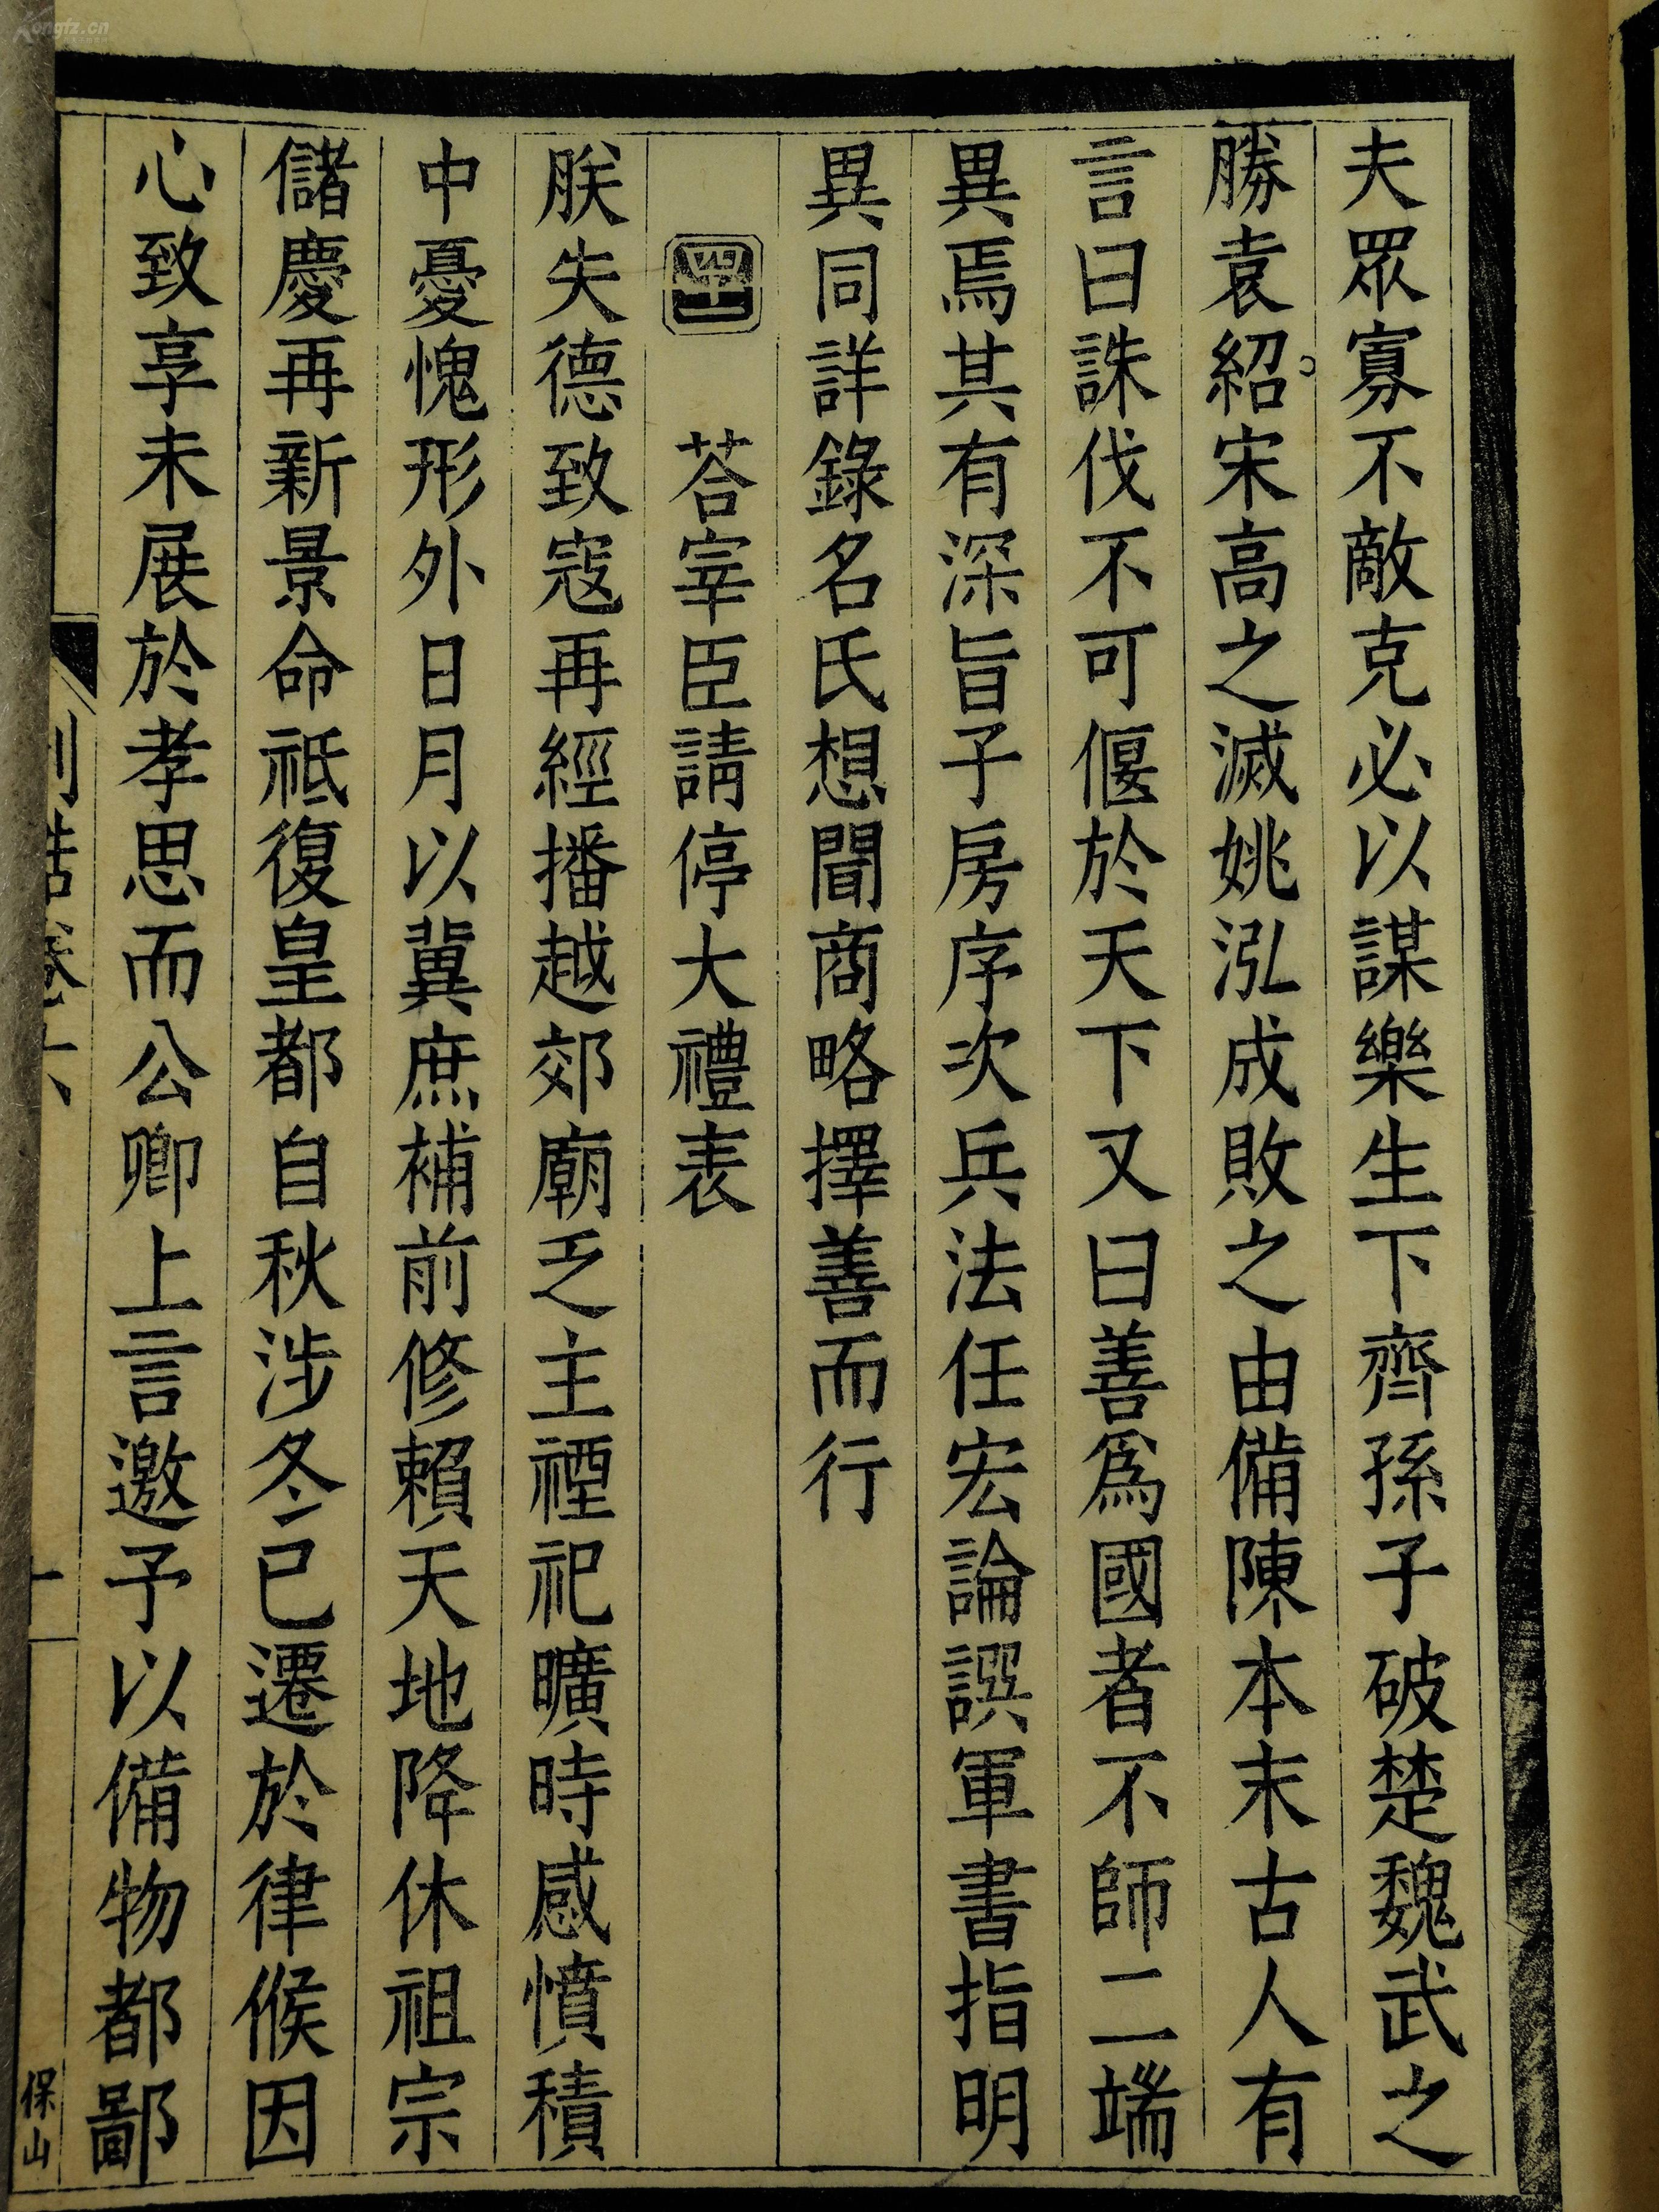 夫眾寡不敵克必以謀樂生下齊孫子破楚魏武之
勝袁紹宋高之滅姚泓成敗之由備陳本末古人有
言曰誅伐不可偃於天下又曰善爲國者不師二端
異焉其有深旨子房序次兵法任宏論譔軍書指明
異同詳錄名氏想聞商略擇善而行
荅宰臣請停大禮表
朕失德致寇再經播越郊廟乏主禋祀曠時感憤積
中憂愧形外日月以冀庶補前修賴天地降休祖宗
儲慶再新景命祗復皇都自秋涉冬已遷於律候因
心致享未展於孝思而公卿上言邀予以備物都鄙
保山
Kongfz.cn